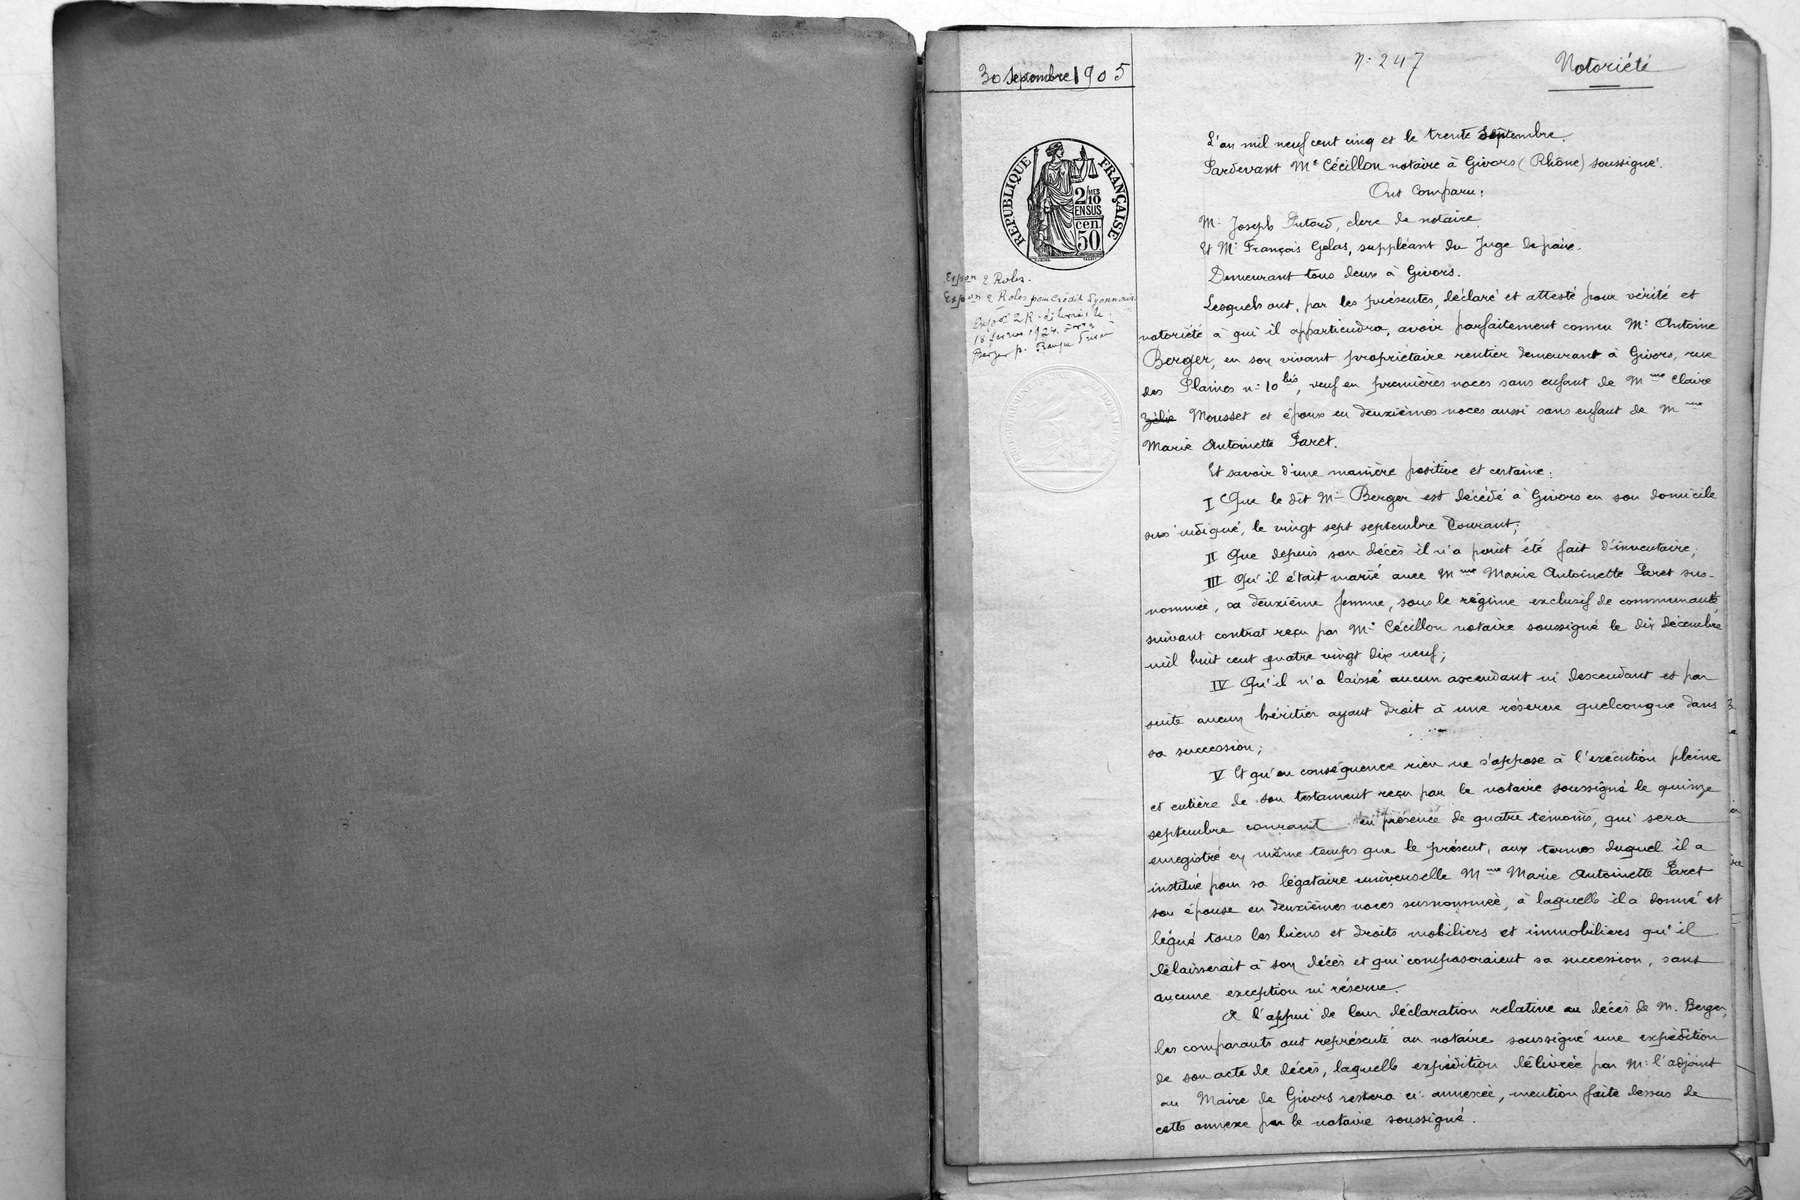 30 Septembre 1905
N: 247
Notoriété
RÉPUBLIQUE FRANÇAISE
2/10 EN SUS
50 cen.
Expon 2 Roles.
Expon 2 Roles pour Crédit Lyonnais
18 février 1924
Berger p. Banque
L'an mil neuf cent cinq et le trente septembre
Pardevant Me Cécillon notaire à Givors (Rhône) soussigné.
Ont Comparu:
M. Joseph Putoud, clerc de notaire
Et Mr François Golas, suppléant du Juge de paix.
Demeurant tous deux à Givors.
Lesquels ont, par les présentes, déclaré et attesté pour vérité et
notoriété à qui il appartiendra, avoir parfaitement connu Mr Antoine
Berger, en son vivant propriétaire rentier demeurant à Givors, rue
des Plaines n: 10 bis, veuf en premières noces sans enfant de Mme Claire
Zélie Mousset et époux en deuxièmes noces aussi sans enfant de Mme
Marie Antoinette Paret.
Et savoir d'une manière positive et certaine:
I Que le dit Mr Berger est décédé à Givors en son domicile
sus indiqué, le vingt sept septembre courant;
II Que depuis son décès il n'a point été fait d'inventaire;
III Qu'il était marié avec Mme Marie Antoinette Paret sus-
nommée, sa deuxième femme, sous le régime exclusif de communauté,
suivant contrat reçu par Me Cécillon notaire soussigné le dix décembre
mil huit cent quatre vingt dix neuf;
IV Qu'il n'a laissé aucun ascendant ni descendant et par
suite aucun héritier ayant droit à une réserve quelconque dans
sa succession;
V Et qu'en conséquence rien ne s'oppose à l'exécution pleine
et entière de son testament reçu par le notaire soussigné le quinze
septembre courant en présence de quatre témoins, qui sera
enregistré en même temps que le présent, aux termes duquel il a
institué pour sa légataire universelle Mme Marie Antoinette Paret
son épouse en deuxièmes noces susnommée, à laquelle il a donné et
légué tous les biens et droits mobiliers et immobiliers qu'il
délaisserait à son décès et qui composeraient sa succession, sans
aucune exception ni réserve.
A l'appui de leur déclaration relative au décès de M. Berger,
les comparants ont représenté au notaire soussigné une expédition
de son acte de décès, laquelle expédition délivrée par Mr l'adjoint
au Maire de Givors restera ci-annexée, mention faite dessus de
cette annexe par le notaire soussigné.